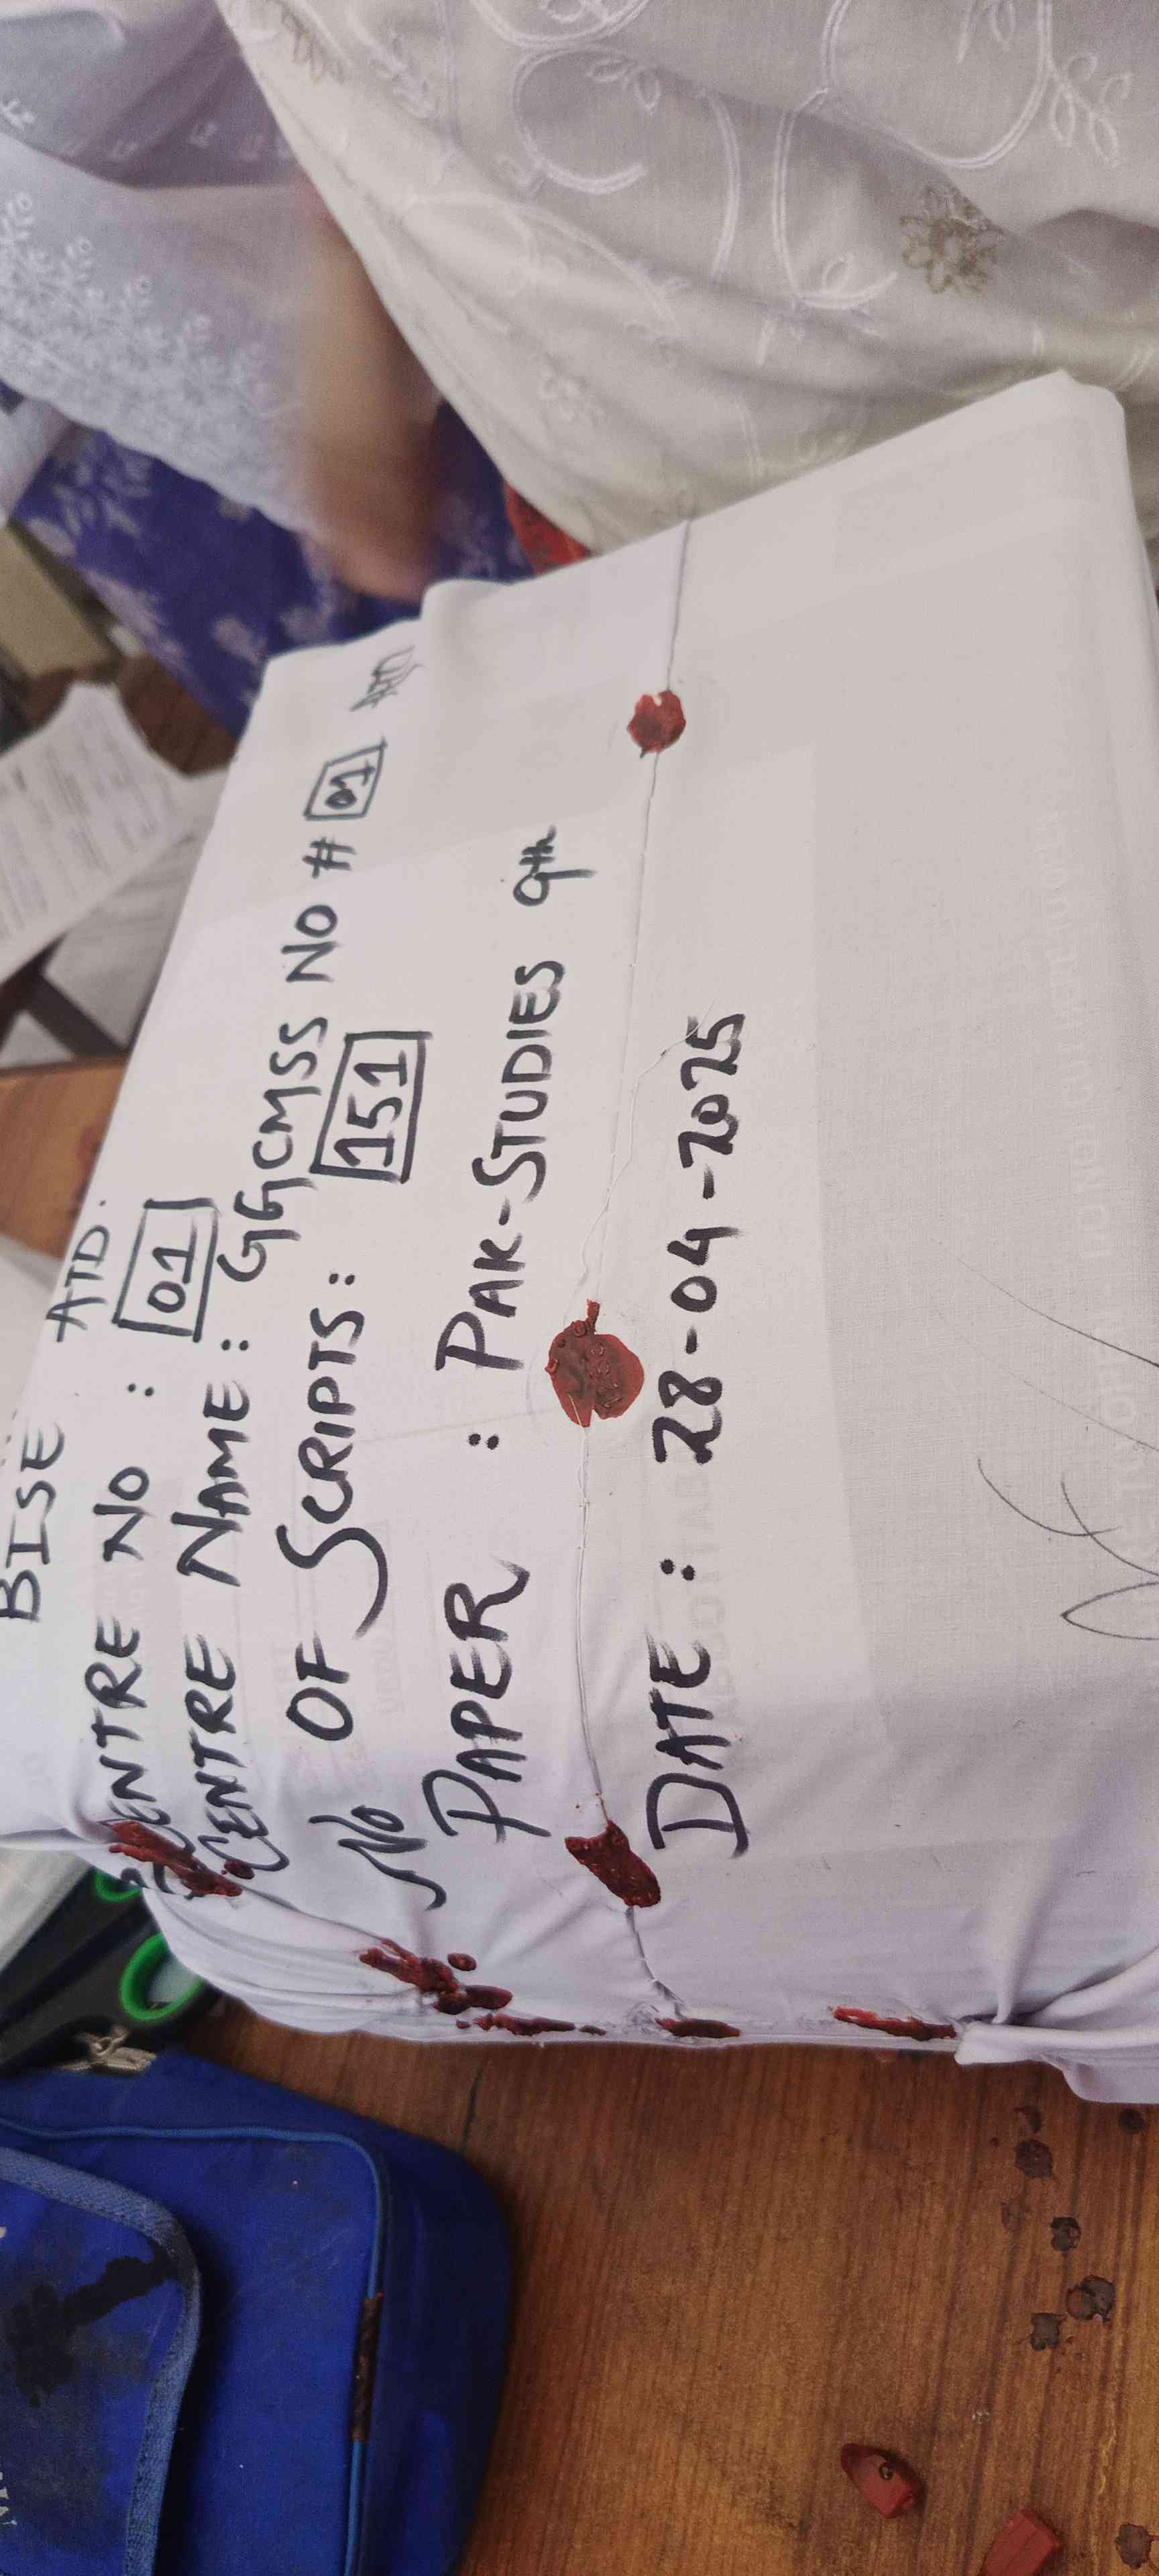 BISE ATD.
CENTRE NO : 01
CENTRE NAME : GGCMSS NO # 01 ATD
NO OF SCRIPTS : 151
PAPER : PAK-STUDIES 9th
DATE : 28-04-2025